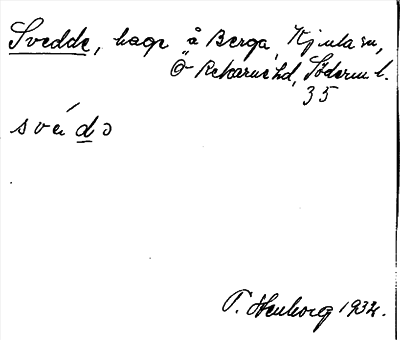 Svedde, hage å Berga, Kjula sn,
Ö Rekarne hd, Söderm l.
35
svèdə
T. Stenborg 1934.